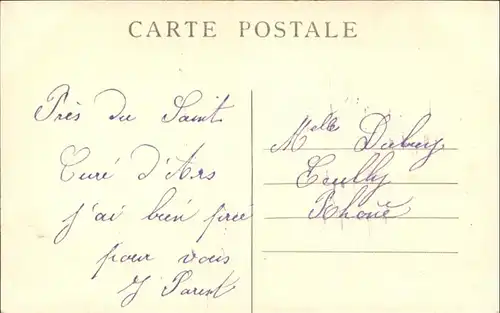 CARTE POSTALE
Près du Saint
Curé d'Ars
j'ai bien prié
pour vous
J Parent
Melle Dabuy
Ecully
Rhône